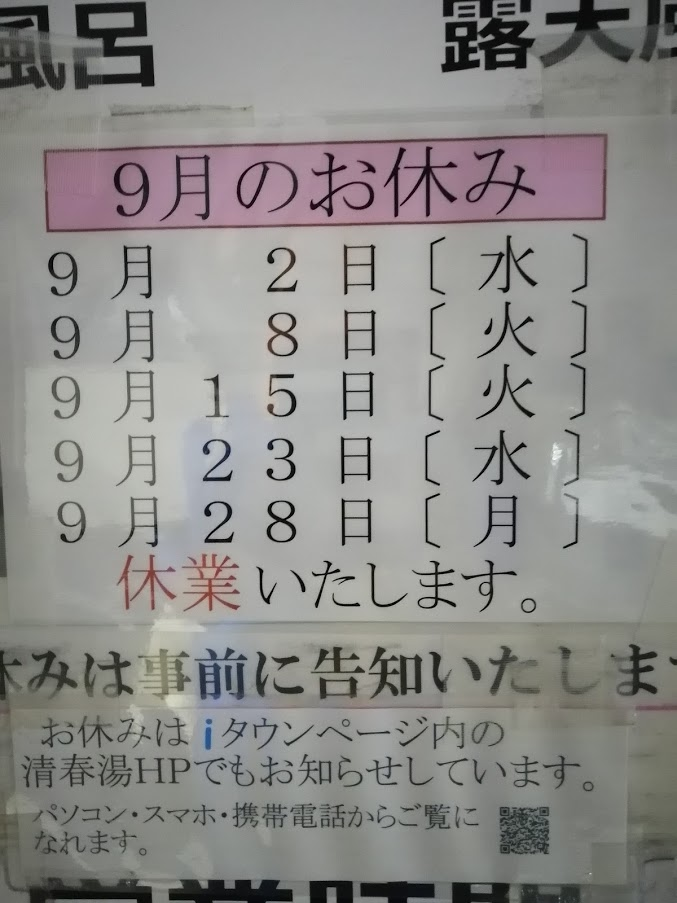 風呂 露天風
9月のお休み
9月 2日〔水〕
9月 8日〔火〕
9月15日〔火〕
9月23日〔水〕
9月28日〔月〕
休業いたします。
休みは事前に告知いたします
お休みは iタウンページ内の
清春湯HPでもお知らせしています。
パソコン・スマホ・携帯電話からご覧に
なれます。
営業時間